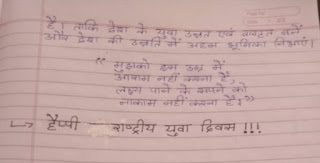 है। ताकि देश के युवा उन्नत एवं जागृत बनें
और देश की उन्नति में अहम भूमिका निभाएं।
“ मुझको इस उम्र में
आराम नहीं करना है,
लक्ष्य पाने के सपने को
नाकाम नहीं करना है। ”
↳ हैप्पी राष्ट्रीय युवा दिवस !!!